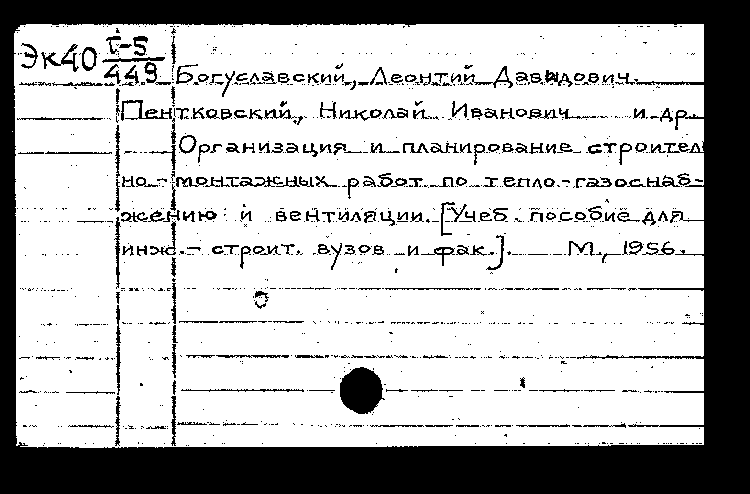 Эк40 Т-5
449
Богуславский, Леонтий Давидович.
Пентковский, Николай Иванович и др.
Организация и планирование строител
но-монтажных работ по тепло-газоснаб-
жению и вентиляции. [Учеб. пособие для
инж.-строит. вузов и фак.]. М., 1956.